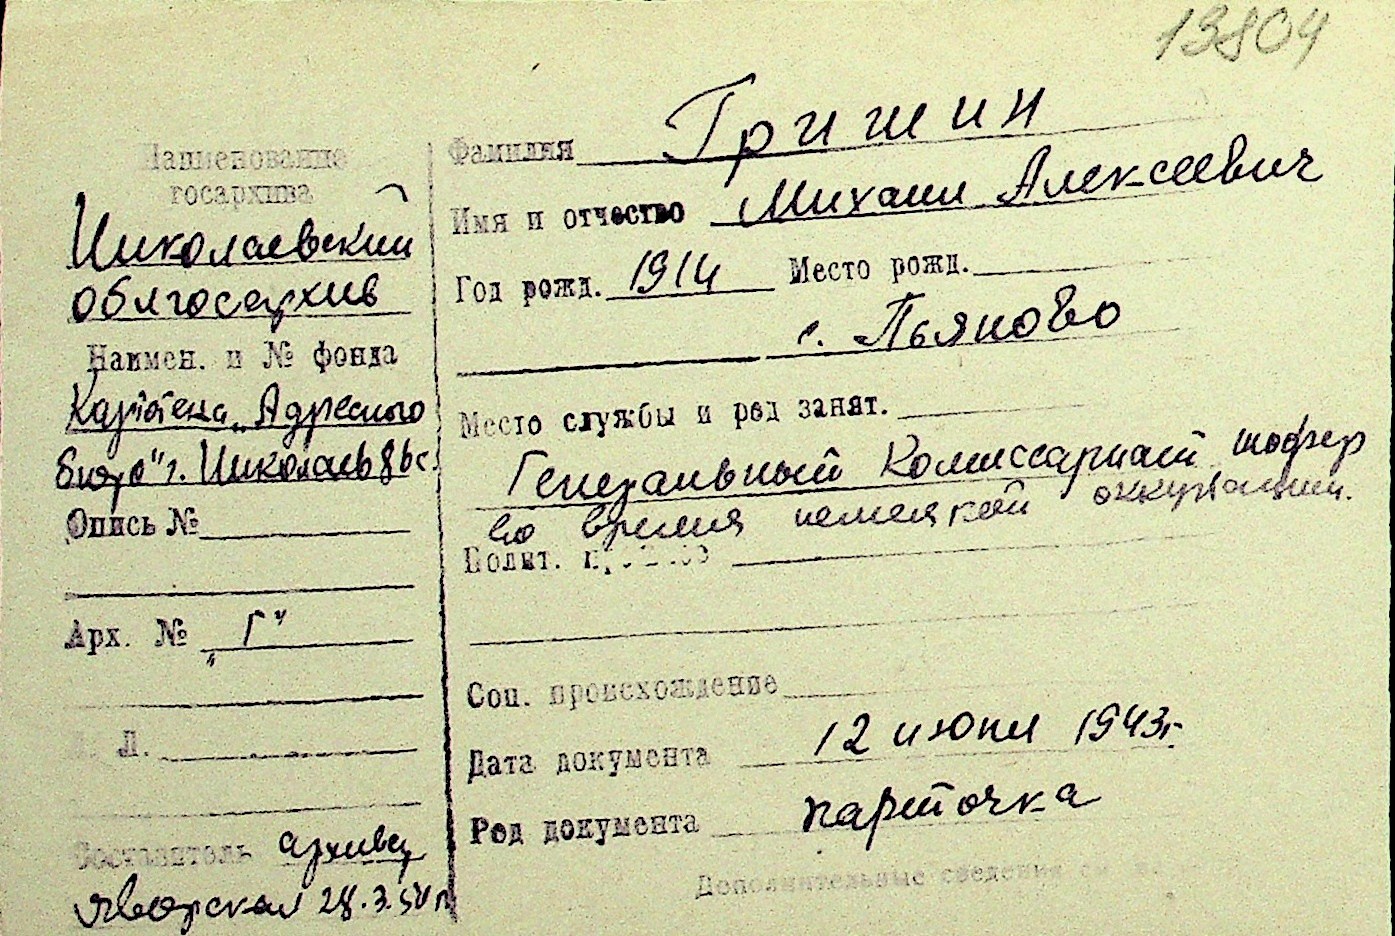 13804
Наименование
госархива
Николаевский
облгосархив
Наимен. и № фонда
Картотека „Адресного
бюро" г. Николаев
Опись №
Арх. № „Г"
Л.
Составитель архивец
Яворская 28.3.50 г.
Фамилия Гришин
Имя и отчество Михаил Алексеевич
Год рожд. 1914 Место рожд.
с. Пьяново
Место службы и род занят.
Генеральный Комиссариат шофер
во время немецкой оккупации.
Полит.
Соц. происхождение
Дата документа 12 июня 1943г.
Род документа карточка
Дополнительные сведения см.